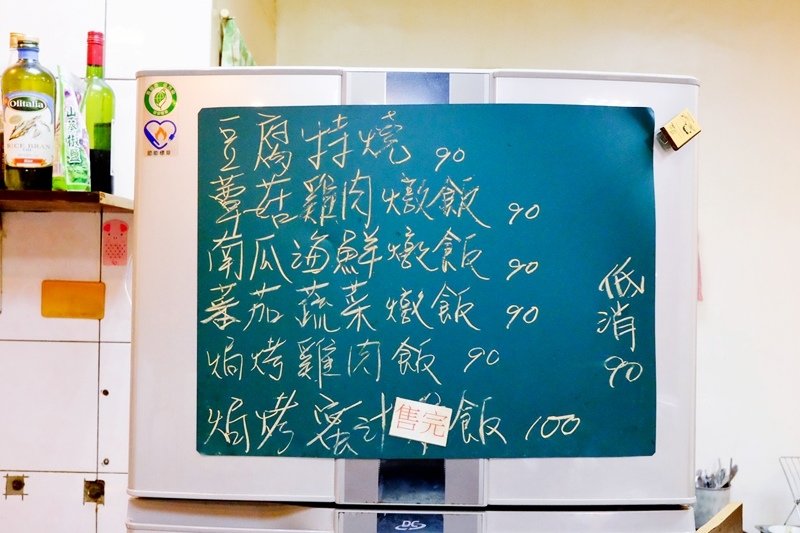 豆腐特燒 90
蘑菇雞肉燉飯 90
南瓜海鮮燉飯 90
蕃茄蔬菜燉飯 90
焗烤雞肉飯 90
焗烤蜜汁 飯 100
售完
低消
90
Olitalia
RICE BRAN
節能標章
DC